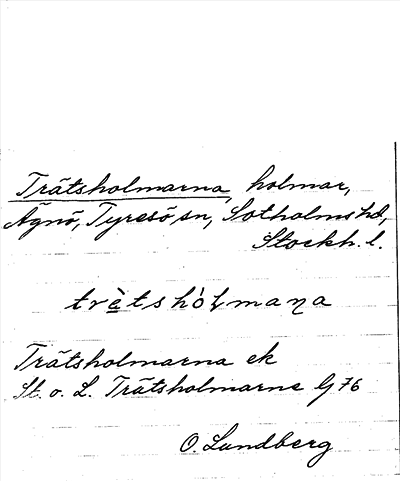 Trätsholmarna, holmar,
Ägnö, Tyresö sn, Sotholms hd,
Stockh. l.
trètshòlmaṇa
Trätsholmarna ek
St. o. L. Trätsholmarne G 76
O. Lundberg